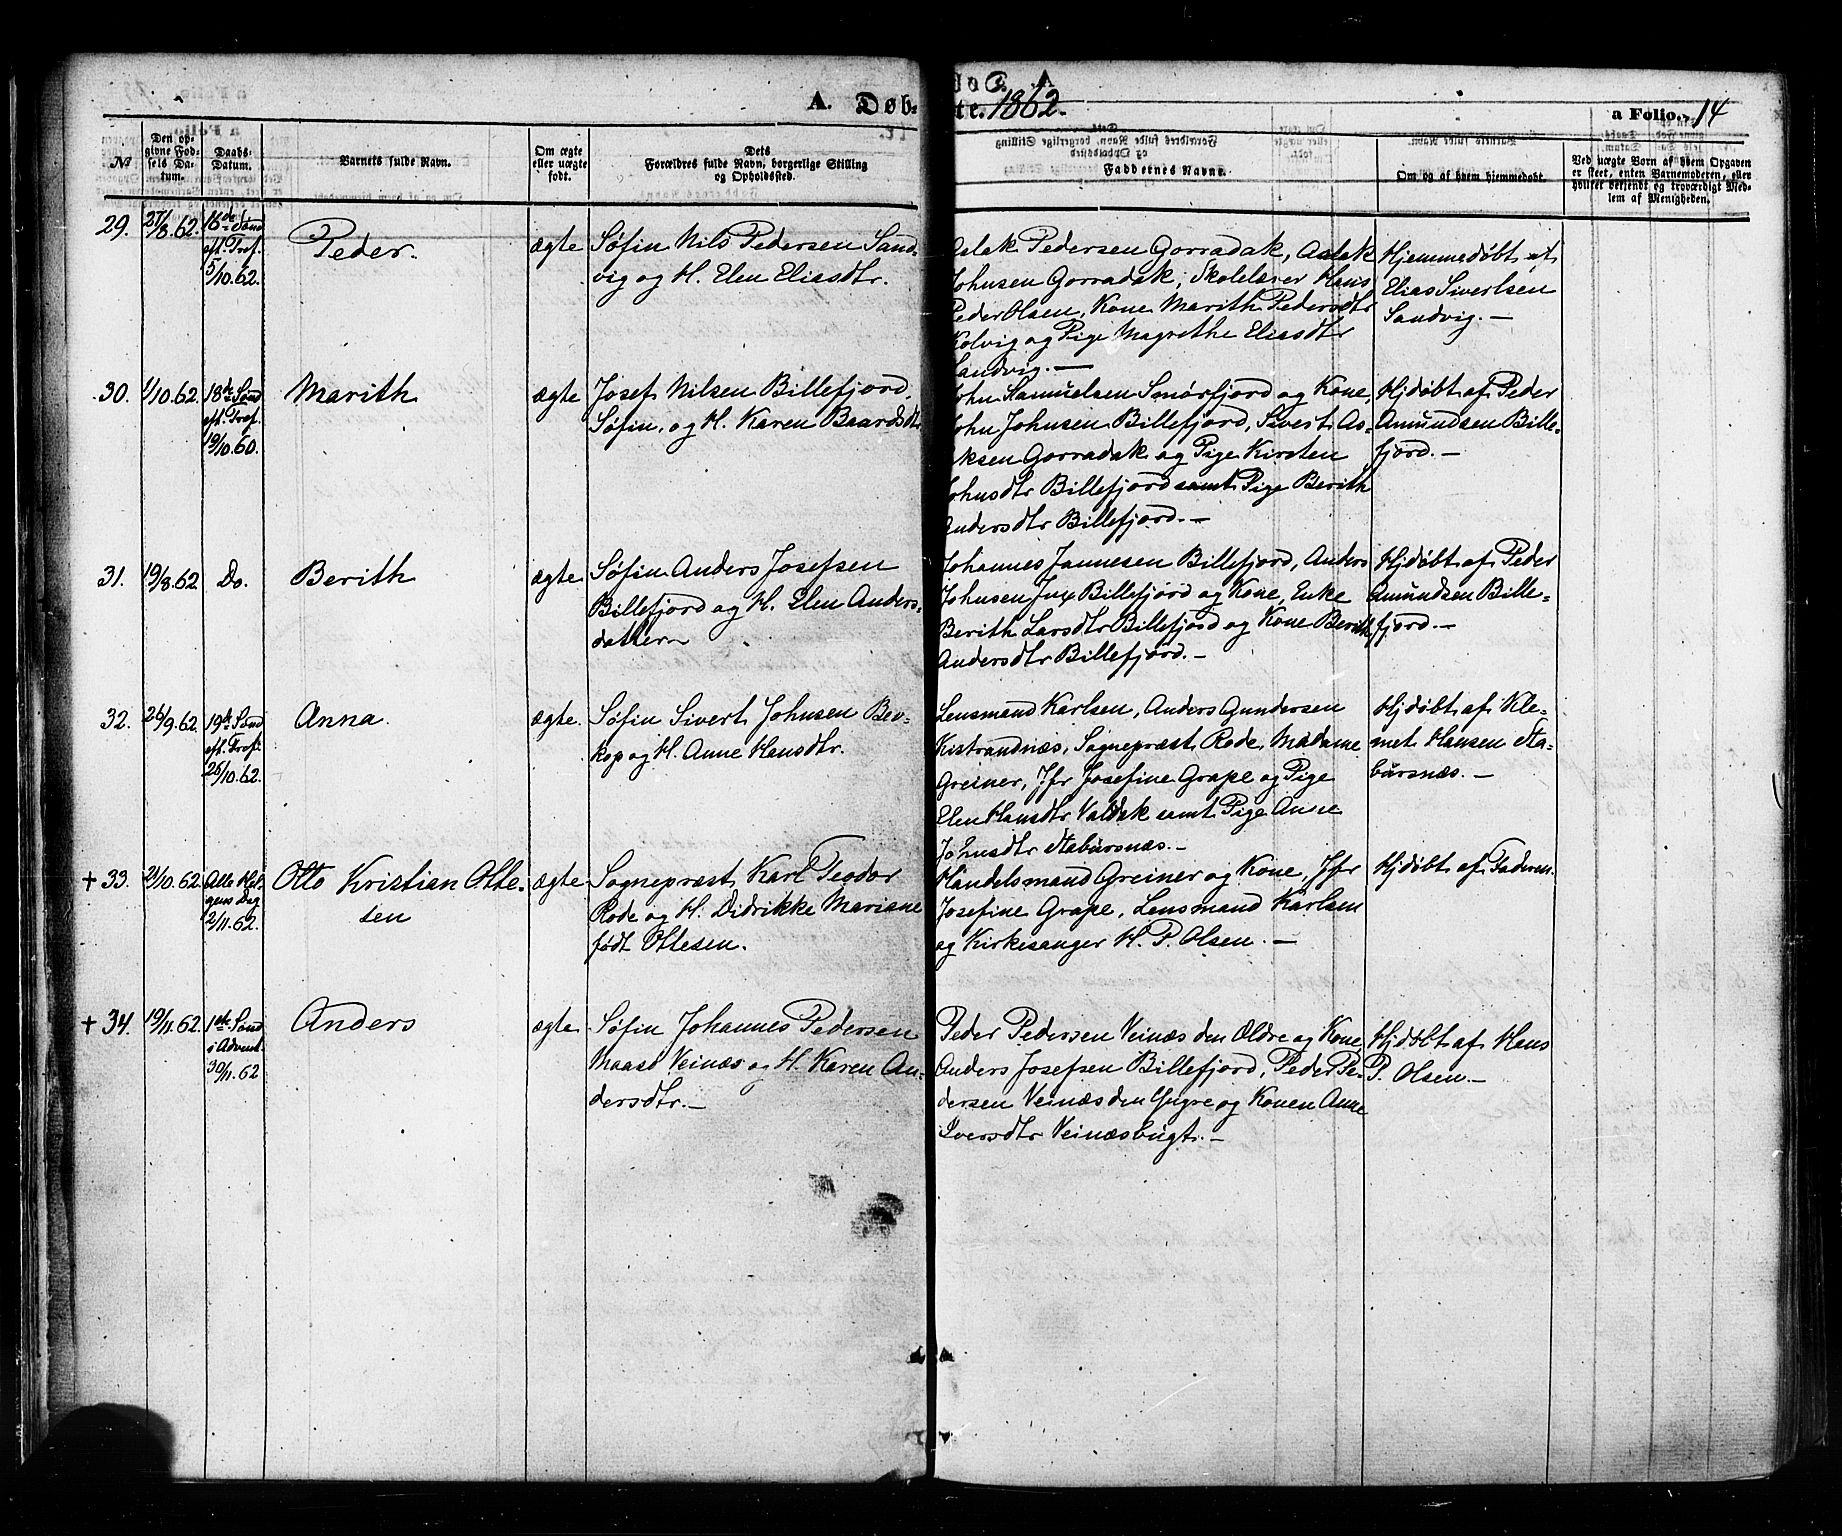 A. Døb=
te. 1862.
a Folio. 14
No
Den op=
givne Fød=
sels Da=
tum.
Daabs=
Datum.
Barnets fulde Navn.
Om ægte
eller uægte
født.
Dets
Forældres fulde Navn, borgerlige Stilling
og Opholdssted.
Faddernes Navne.
Om og af hvem hjemmedøbt.
Ved uægte Børn af hvem Opgaven
er skeet, enten Barnemoderen, eller
hvilket verfendt og troværdigt Med=
lem af Menigheden.
29.
27/8.62.
16de Sønd
eft. Tref.
5/10.62.
Peder.
ægte
Søfin Nils Pedersen Sand=
vig og H. Elen Eliasdtr.
Aslak Pedersen Gorradak, Aslak
Johnsen Gorradak, Skolelærer Hans
Peder Olsen, Kone Marith Pedersdtr
Kolvig og Pige Magrethe Eliasdtr
Sandvig. —
Hjemmedøbt af
Elias Sivertsen
Sandvig. —
30.
1/10.62.
18de Sønd
eft. Tref.
19/10.60.
Marith
ægte
Josef Nilsen Billefjord,
Søfin, og H. Karen Baardsdtr
John Samuelsen Smørfjord og Kone,
John Johnsen Billefjord, Sivert As=
laksen Gorradak og Pige Kirsten
Johnsdtr Billefjord samt Pige Berith
Andersdtr Billefjord. —
Hjdøbt af Peder
Amundsen Bille=
fjord. —
31.
19/8.62
Do.
Berith
ægte
Søfin Anders Josefsen
Billefjord og H. Elen Anders=
dattern
Johannes Jannesen Billefjord, Anders
Johnsen Jux Billefjord og Kone, Enke
Berith Larsdtr Billefjord og Kone Berith
Andersdtr Billefjord. —
Hjdøbt af Peder
Amundsen Bille=
fjord. —
32.
26/9.62.
19de Sønd
eft. Tref.
26/10.62.
Anna.
ægte.
Søfin Sivert Johnsen Bev=
kop og H. Anne Hansdtr.
Lensmand Karlsen, Anders Gundersen
Kistrandnæs, Sognepræst Rode, Madame
Greiner, Jfr Josefine Grape og Pige
Elen Hansdtr Valdak samt Pige Anne
Johnsdtr Stabursnæs. —
Hjdøbt af Kle=
met Hansen Sta=
bursnæs. —
+ 33.
21/10.62.
Alle Hel=
gens Dag
2/11.62.
Otto Kristian Otte=
sen
ægte
Sognepræst Karl Teodor
Rode og H. Didrikke Mariane
født Ottesen.
Handelsmand Greiner og Kone, Jfr
Josefine Grape, Lensmand Karlsen
og Kirkesanger H. P. Olsen. —
Hjdøbt af Faderen.
+ 34.
19/11.62.
1ste Sønd
i Advent
30/11.62
Anders
ægte
Søfin Johannes Pedersen
Maasø Veinæs og H. Karen An=
dersdtr. —
Peder Pedersen Veinæs den Ældre og Kone,
Anders Josefsen Billefjord, Peder Pe=
dersen Veinæs den Yngre og Konen Anne
Iversdtr Veinæsbugt. —
Hjdøbt af Hans
P. Olsen. —